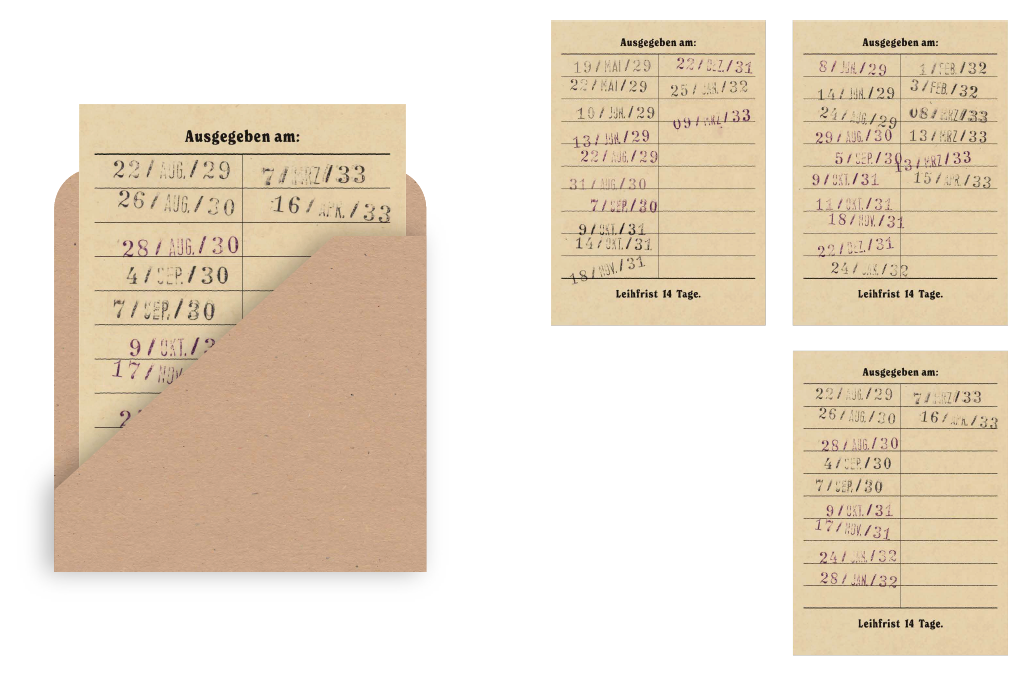 Ausgegeben am:
22/AUG./29
26/AUG./30
28/AUG./30
4/SEP./30
7/SEP./30
9/OKT./3
17/NOV
2
7/MRZ/33
16/APR./33
Ausgegeben am:
19/MAI/29
22/MAI/29
10/JUN./29
13/JUN./29
22/AUG./29
31/AUG./30
7/SEP./30
9/OKT./31
14/OKT./31
18/NOV./31
22/DEZ./31
25/JAN./32
09/MRZ/33
Leihfrist 14 Tage.
Ausgegeben am:
8/JUN./29
14/JUN./29
24/AUG./29
29/AUG./30
5/SEP./30
9/OKT./31
11/OKT./31
18/NOV./31
22/DEZ./31
24/JAN./32
1/FEB./32
3/FEB./32
08/MRZ/33
13/MRZ/33
13/MRZ/33
15/APR./33
Leihfrist 14 Tage.
Ausgegeben am:
22/AUG./29
26/AUG./30
28/AUG./30
4/SEP./30
7/SEP./30
9/OKT./31
17/NOV./31
24/JAN./32
28/JAN./32
7/MRZ/33
16/APR./33
Leihfrist 14 Tage.